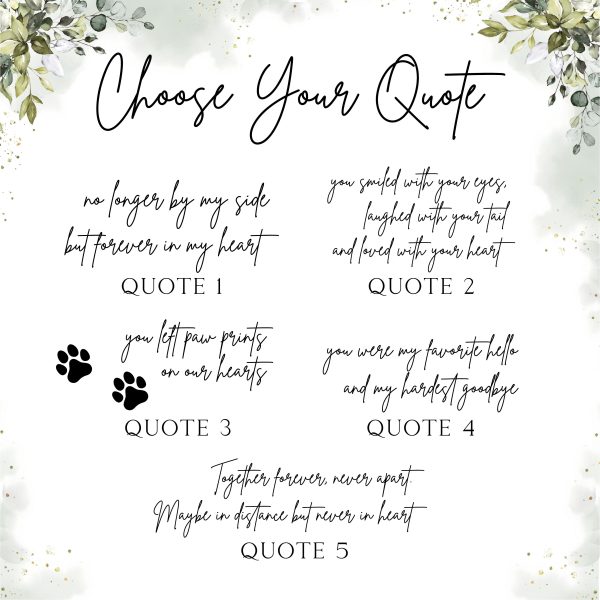 Choose Your Quote
no longer by my side
but forever in my heart
QUOTE 1
you smiled with your eyes,
laughed with your tail
and loved with your heart
QUOTE 2
you left paw prints
on our hearts
QUOTE 3
you were my favorite hello
and my hardest goodbye
QUOTE 4
Together forever, never apart.
Maybe in distance but never in heart
QUOTE 5